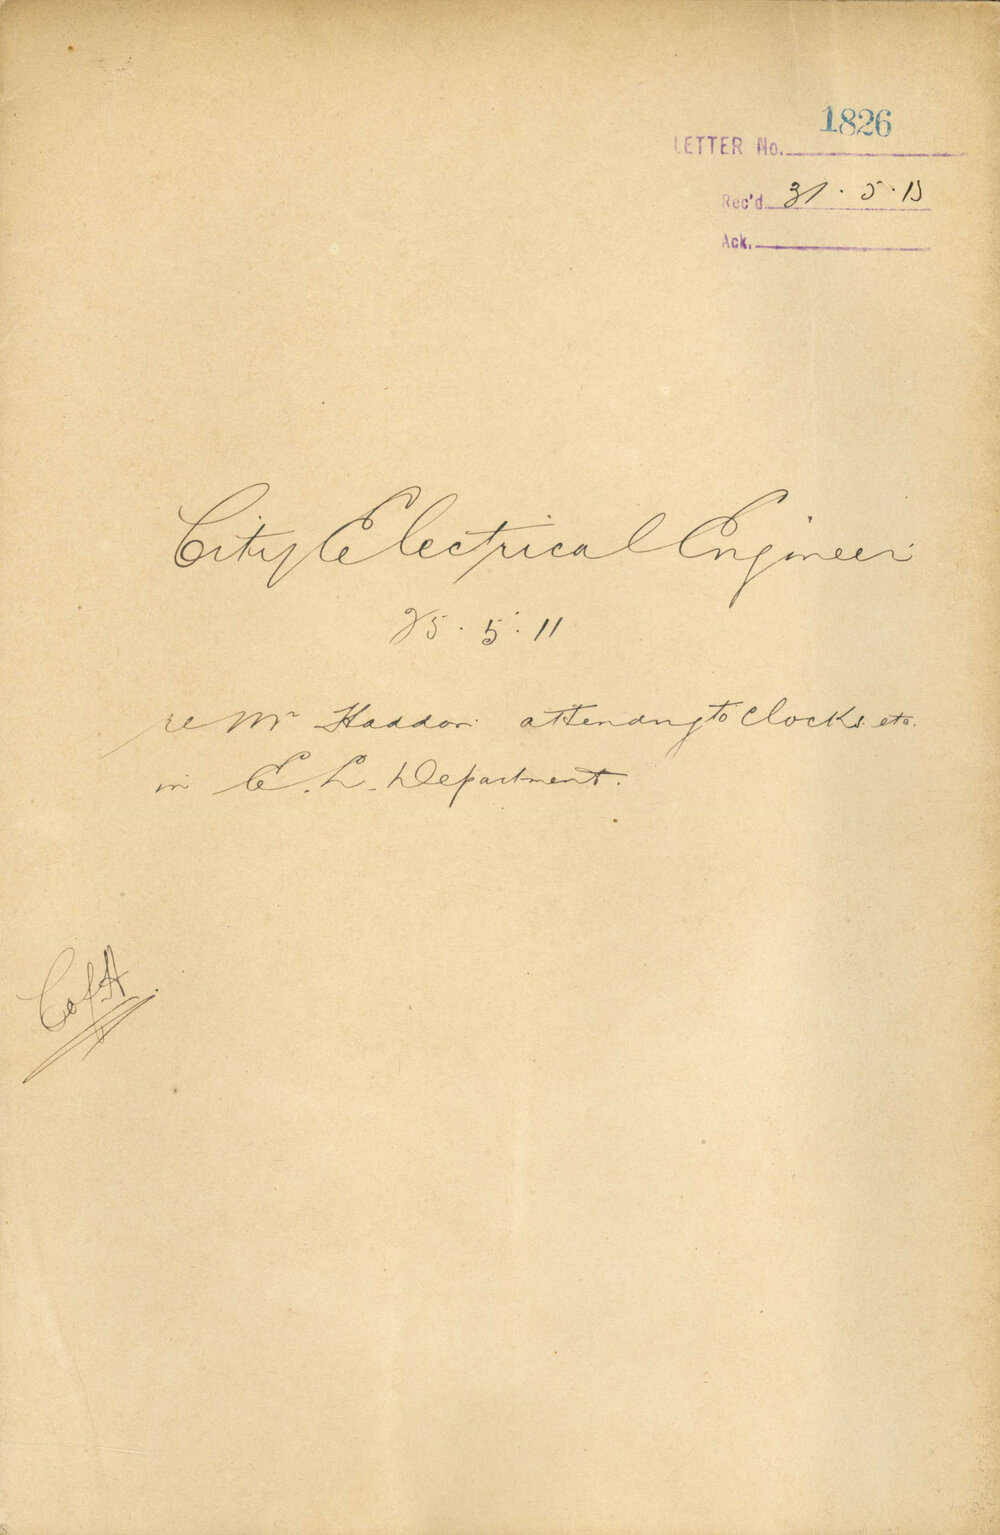 1826
LETTER No.
Rec'd 31.5.11
Ack.
City Electrical Engineer
25.5.11
re Mr Haddon attending to Clocks etc.
in E.L. Department.
C of H